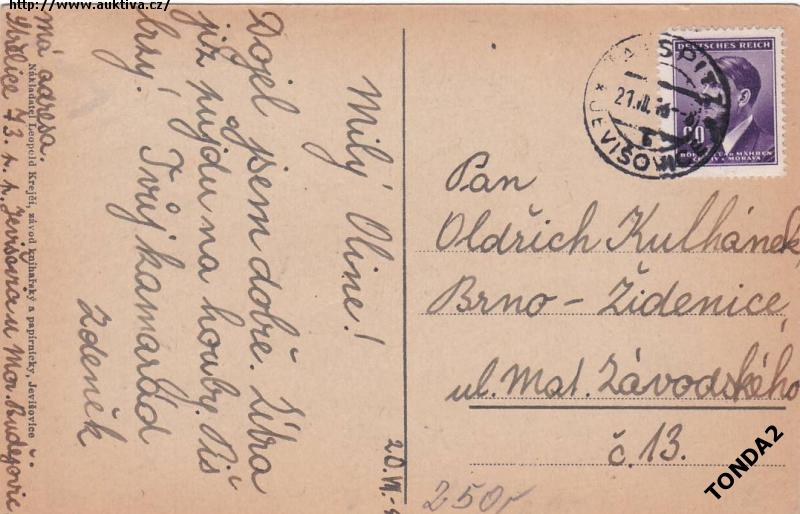 http://www.auktiva.cz/
Milý Oline!
Dojel jsem dobře. Líba
již půjdu na houby. Piš
brzy!
Tvůj kamarád
Zdeněk
má adresa.
Střelice 73. p. p. Jevišovice u Mor. Budějovic
Nakladatel Leopold Krejčí, závod knihařský a papírnický, Jevišovice
20. VII.
DEUTSCHES REICH
60
BÖHMEN UND MÄHREN
ČECHY A MORAVA
JAISPITZ
* JEVIŠOVICE
Pan
Oldřich Kulhánek,
Brno-Židenice,
ul. Mat. Závodského
č. 13.
250
TONDA2